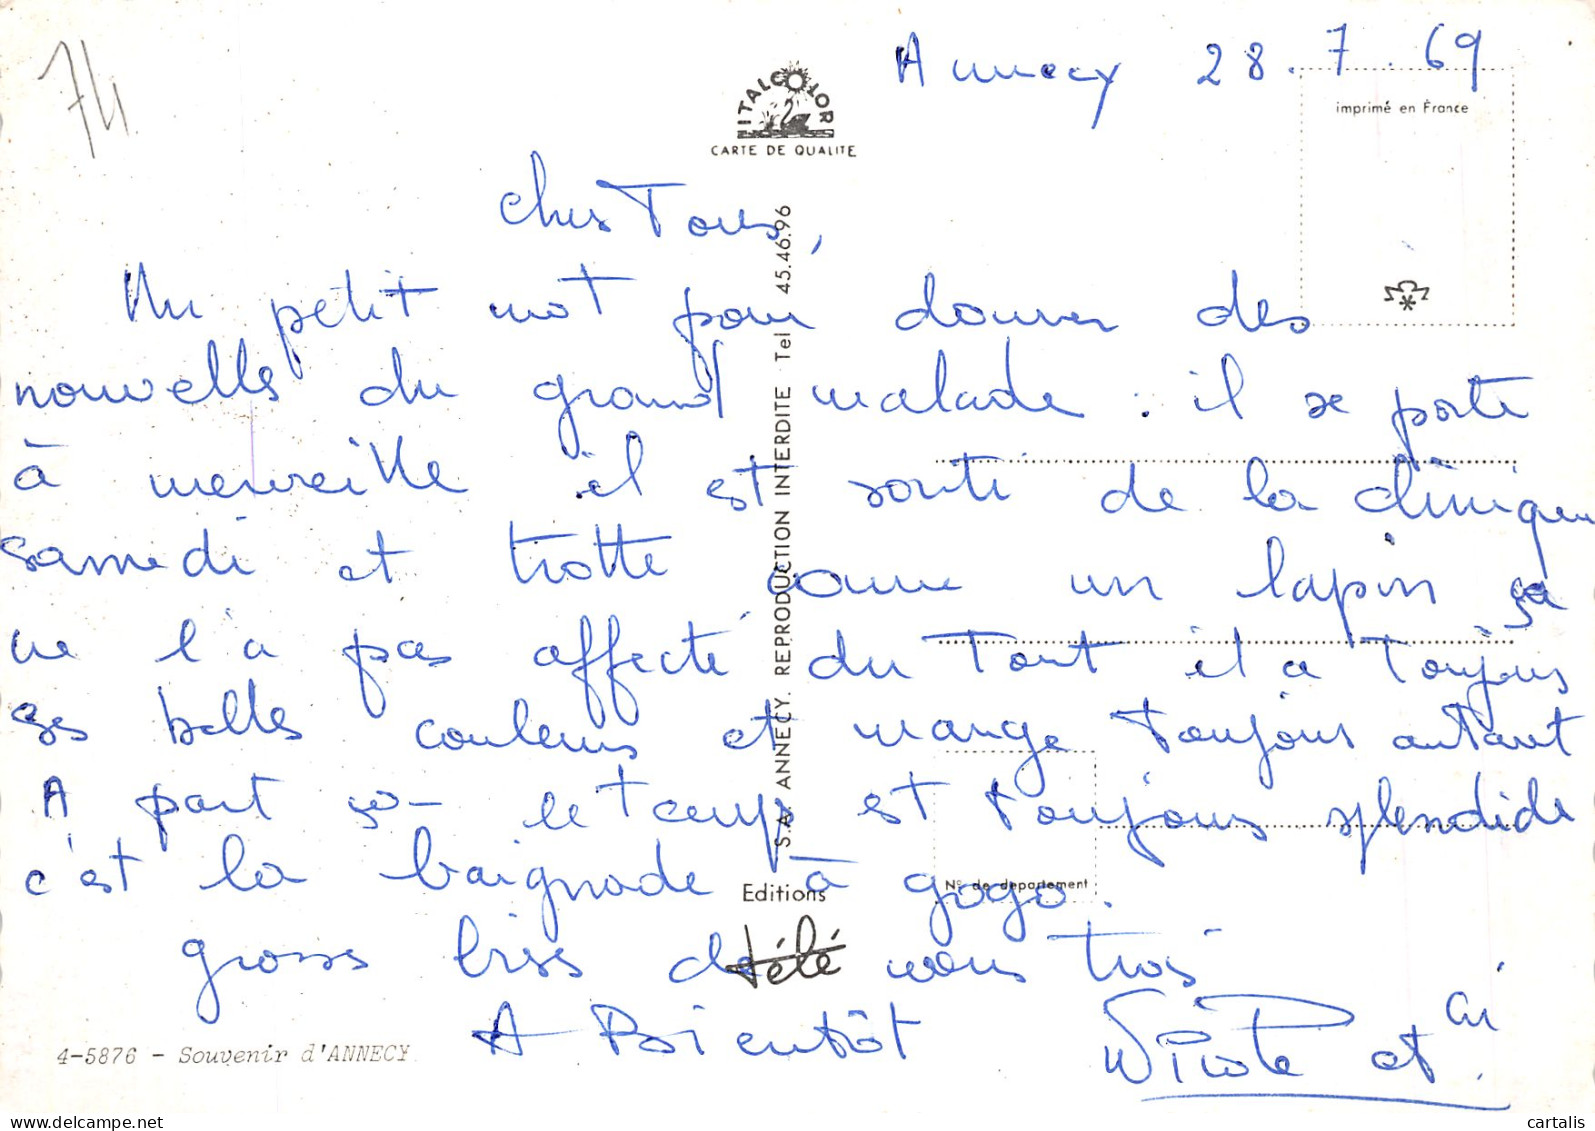 74
Annecy 28.7.69
ITALCOLOR
CARTE DE QUALITE
imprimé en France
Chers Tous,
Un petit mot pour donner des
nouvelles du grand malade : il se porte
à merveille il est sorti de la clinique
samedi et trotte comme un lapin ça
ne l'a pas affecté du tout il a toujours
ses belles couleurs et mange toujours autant
A part ça le temps est toujours splendide
c'est la baignade à gogo.
gross biss de nous trois
A Bientôt
et
S.A. ANNECY. REPRODUCTION INTERDITE Tel 45.46.96
Editions
télé
N° de département
4-5876 - Souvenir d'ANNECY
www.delcampe.net
cartalis